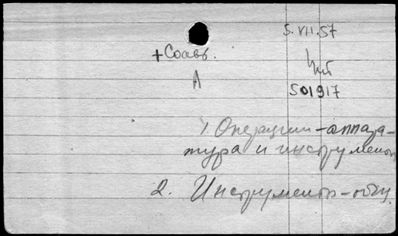 5.VII.57
+Соавт.
А
501917
1) Операции-аппара-
тура и инструменты
2. Инструменты-общ.